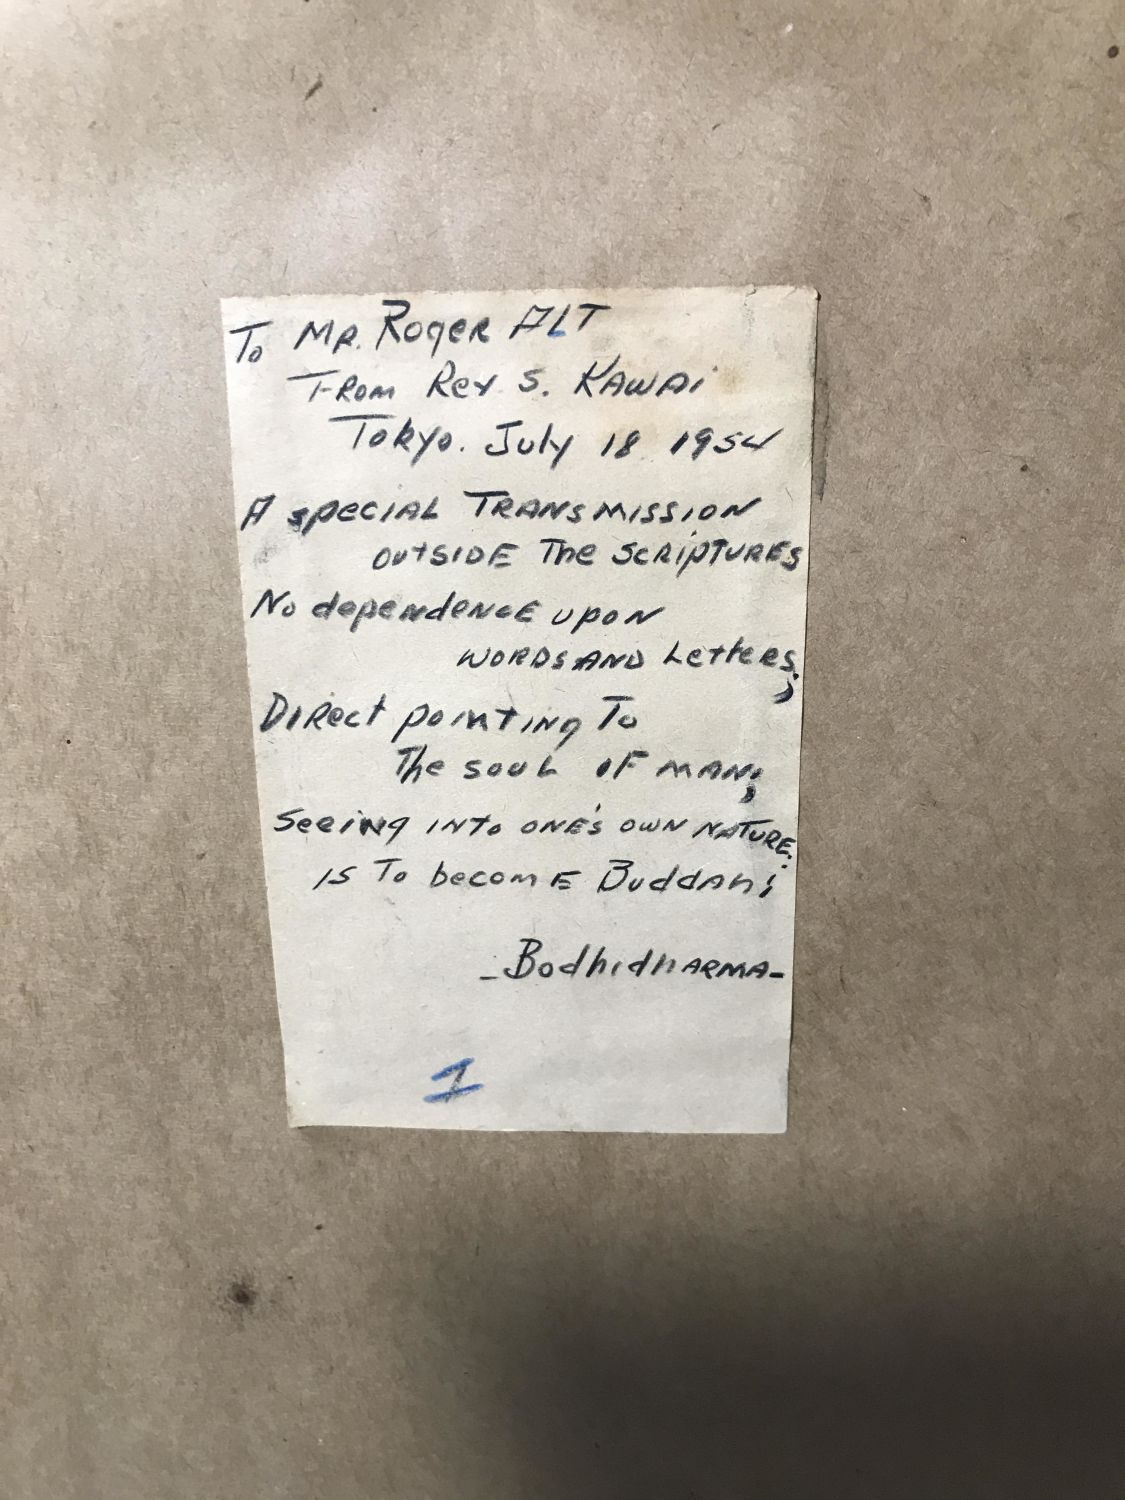 To MR. Roger ALT
From Rev S. KAWAi
Tokyo. July 18 1954
A special TRANSMISSION
outSIDE The SCRIPTURES
No dependence upon
WORDS AND Letters;
Direct pointing To
The SOUL OF MAN;
Seeing INTO ONE'S OWN NATURE.
IS To become Buddah;
- Bodhidharma -
1